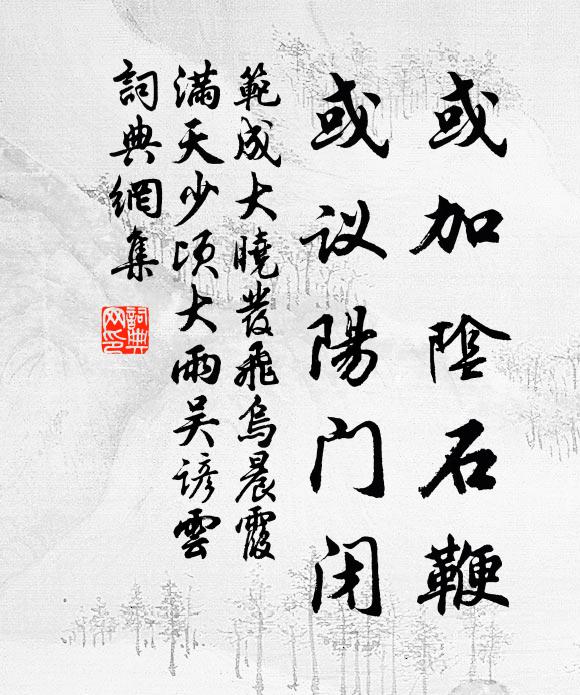 或加陰石鞭
或议陽门闭
範成大曉發飛烏晨霞
满天少頃大雨吴諺雲
詞典網集
詞典
网印